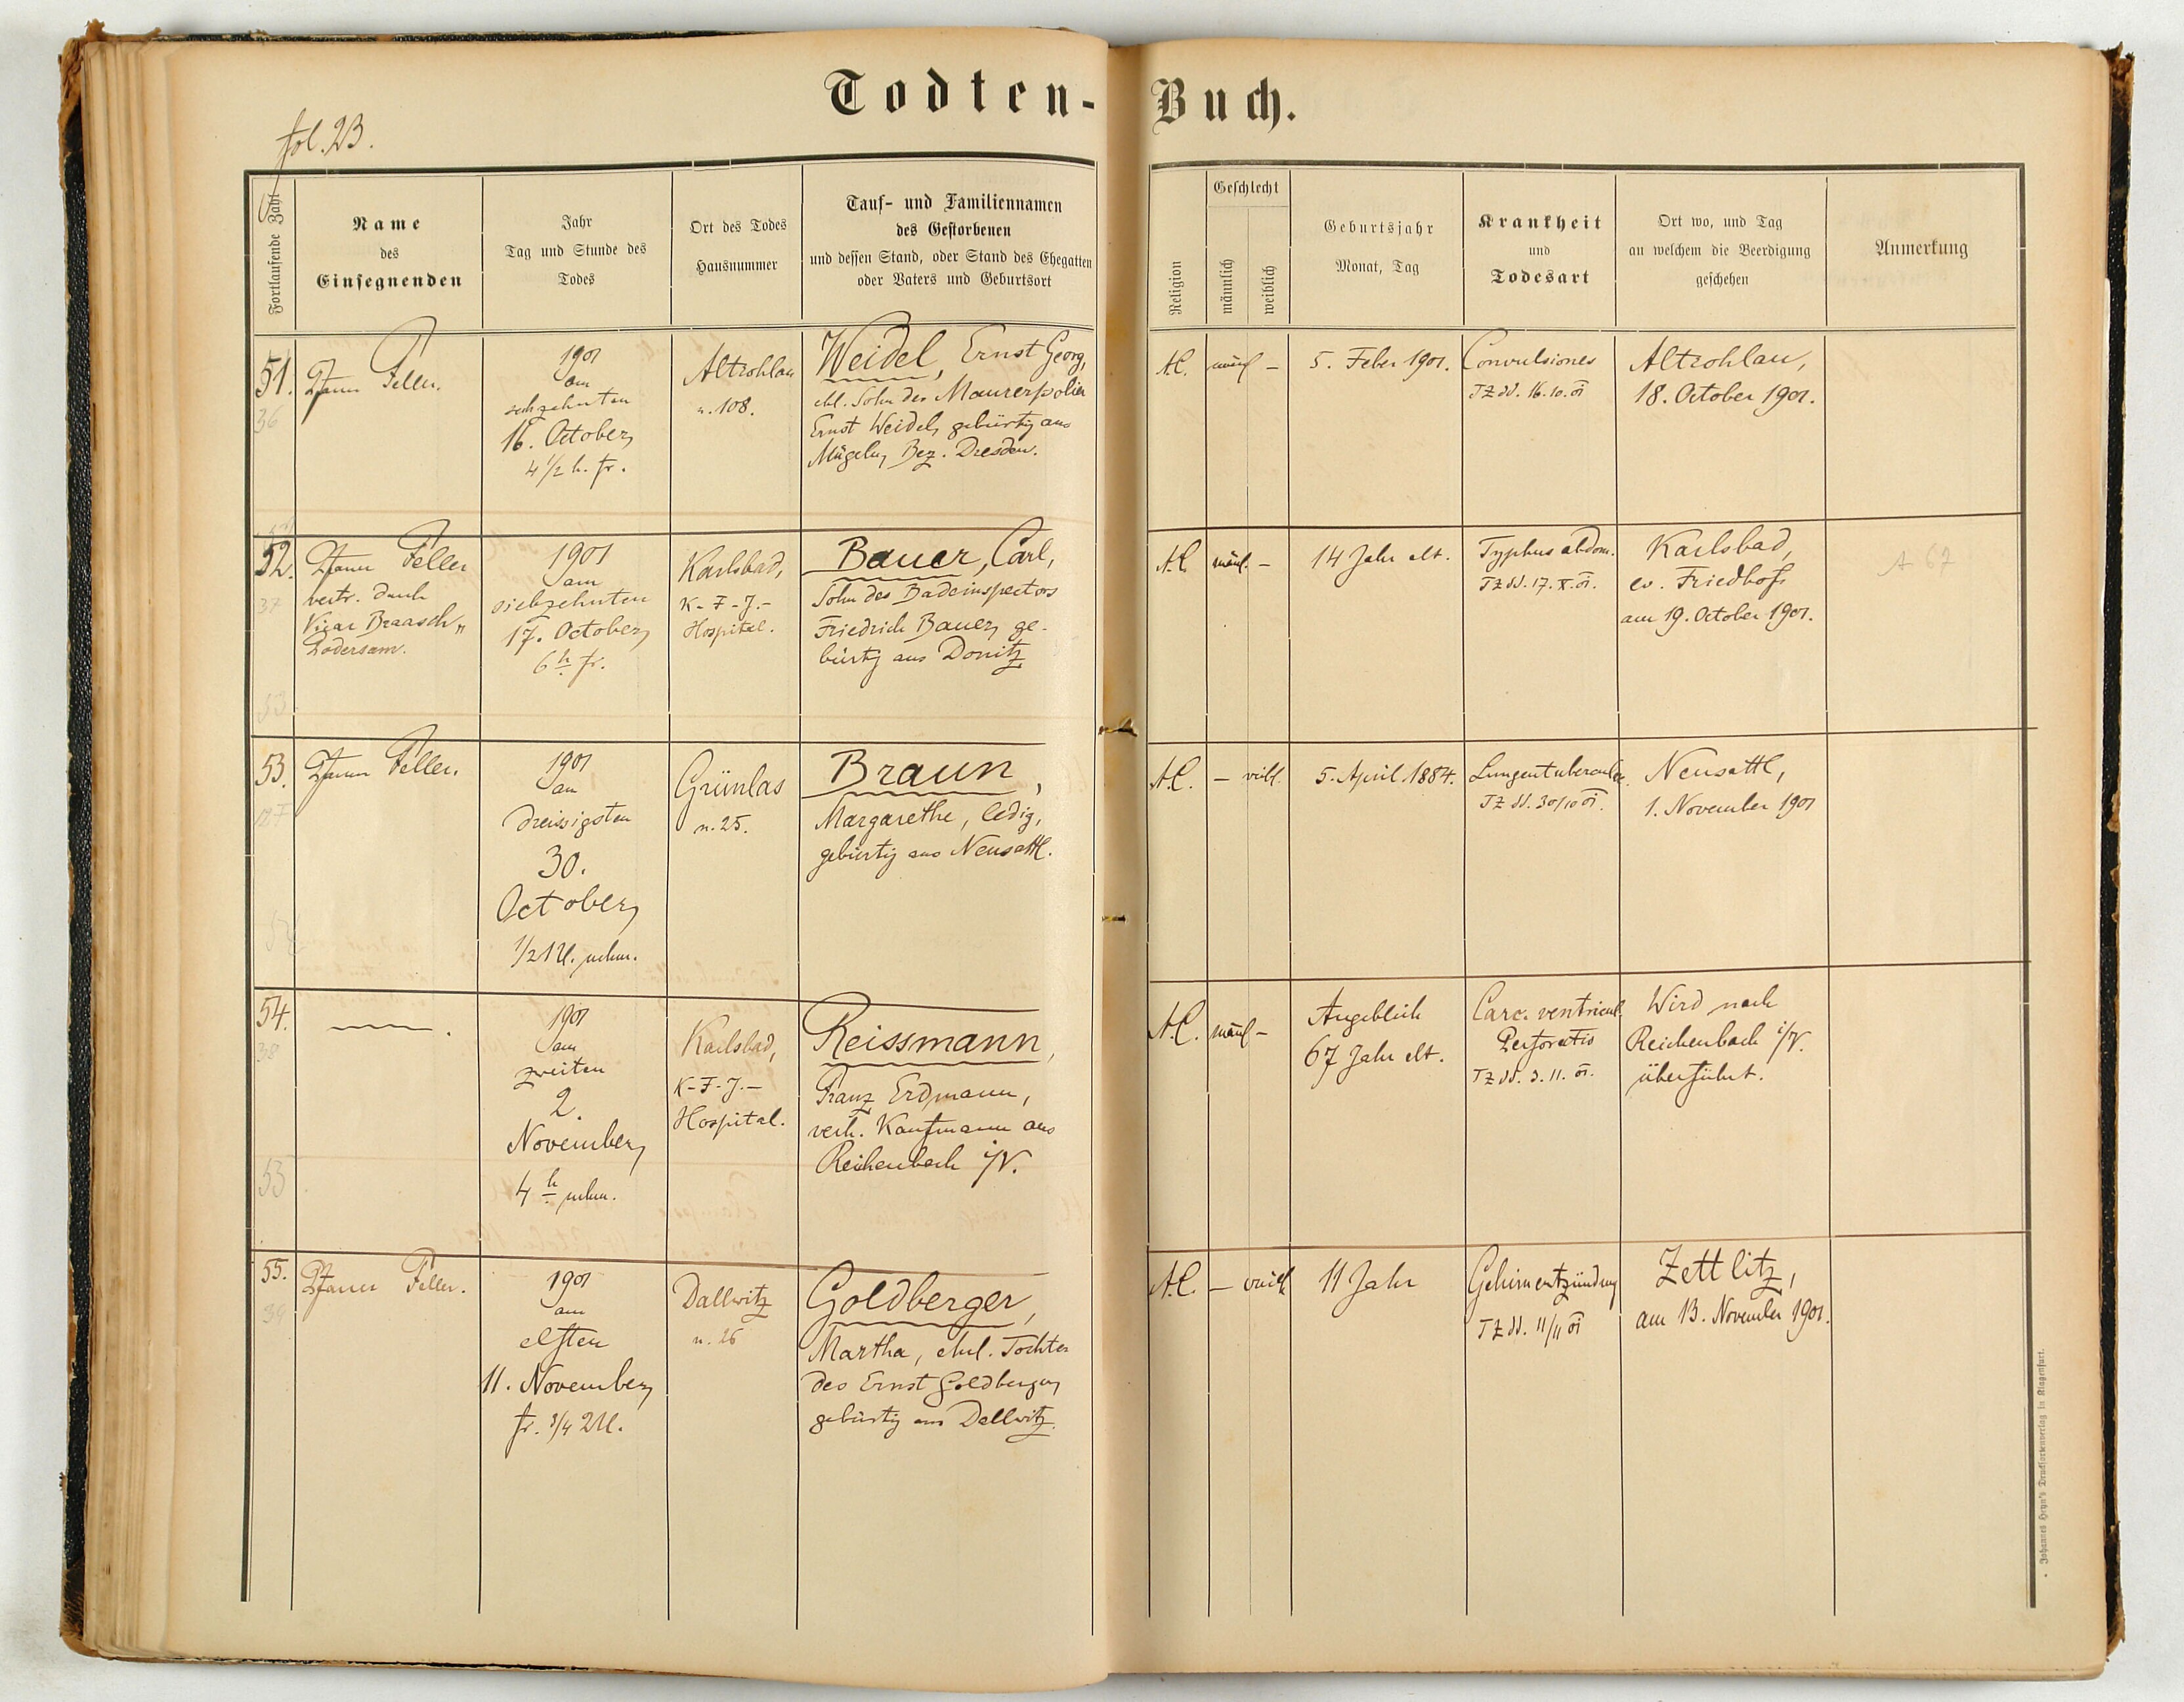 Todten-Buch.
fol. 23.
Fortlaufende Zahl
Name
des
Einsegnenden
Jahr
Tag und Stunde des
Todes
Ort des Todes
Hausnummer
Tauf- und Familiennamen
des Gestorbenen
und dessen Stand, oder Stand des Ehegatten
oder Vaters und Geburtsort
Religion
Geschlecht
männlich
weiblich
Geburtsjahr
Monat, Tag
Krankheit
und
Todesart
Ort wo, und Tag
an welchem die Beerdigung
geschehen
Anmerkung
51.
36
Pfarrer Feller.
1901
am
sechzehnten
16. October,
4 1/2 h. fr.
Altrohlau
n. 108.
Weidel, Ernst Georg,
ehl. Sohn des Maurerpolier
Ernst Weidel, gebürtig aus
Mügeln, Bez. Dresden.
A.C.
männl –
5. Feber 1901.
Convulsiones
TZ dd. 16.10.01
Altrohlau,
18. October 1901.
52.
37
Pfarrer Feller
vertr. durch
Vicar Braasch,
Podersam.
1901
am
siebzehnten
17. October,
6 h fr.
Karlsbad,
K-F-J.-
Hospital.
Bauer, Carl,
Sohn des Badeinspectors
Friedrich Bauer, ge-
bürtig aus Donitz
A.C.
männl. –
14 Jahr alt.
Typhus abdom.
TZ dd. 17. X. 01.
Karlsbad,
ev. Friedhof,
am 19. October 1901.
A 67
53
53.
Pfarrer Feller.
1901
am
dreissigsten
30.
October,
1/2 1 U. nchm.
Grünlas
n. 25.
Braun,
Margarethe, ledig,
gebürtig aus Neusattl.
A.C.
– weibl.
5. April 1884.
Lungentuberculose.
TZ dd. 30/10 01.
Neusattl,
1. November 1901
54.
38
1901
am
zweiten
2.
November,
4 h nchm.
Karlsbad,
K-F-J.-
Hospital.
Reissmann,
Franz Erdmann,
verh. Kaufmann aus
Reichenbach i/V.
A.C.
männl –
Angeblich
67 Jahr alt.
Carc. ventricul.
Perforatio
TZ dd. 3. 11. 01.
Wird nach
Reichenbach i/V.
überführt.
55
55.
39
Pfarrer Feller.
1901
am
elften
11. November,
fr. 3/4 2 U.
Dallwitz
n. 26
Goldberger,
Martha, ehel. Tochter
des Ernst Goldberger,
gebürtig aus Dallwitz.
A.C.
– weibl
11 Jahr
Gehirnentzündung
TZ dd. 11/11 01
Zettlitz,
am 13. November 1901.
Johannes Heyn's Drucksortenverlag in Klagenfurt.